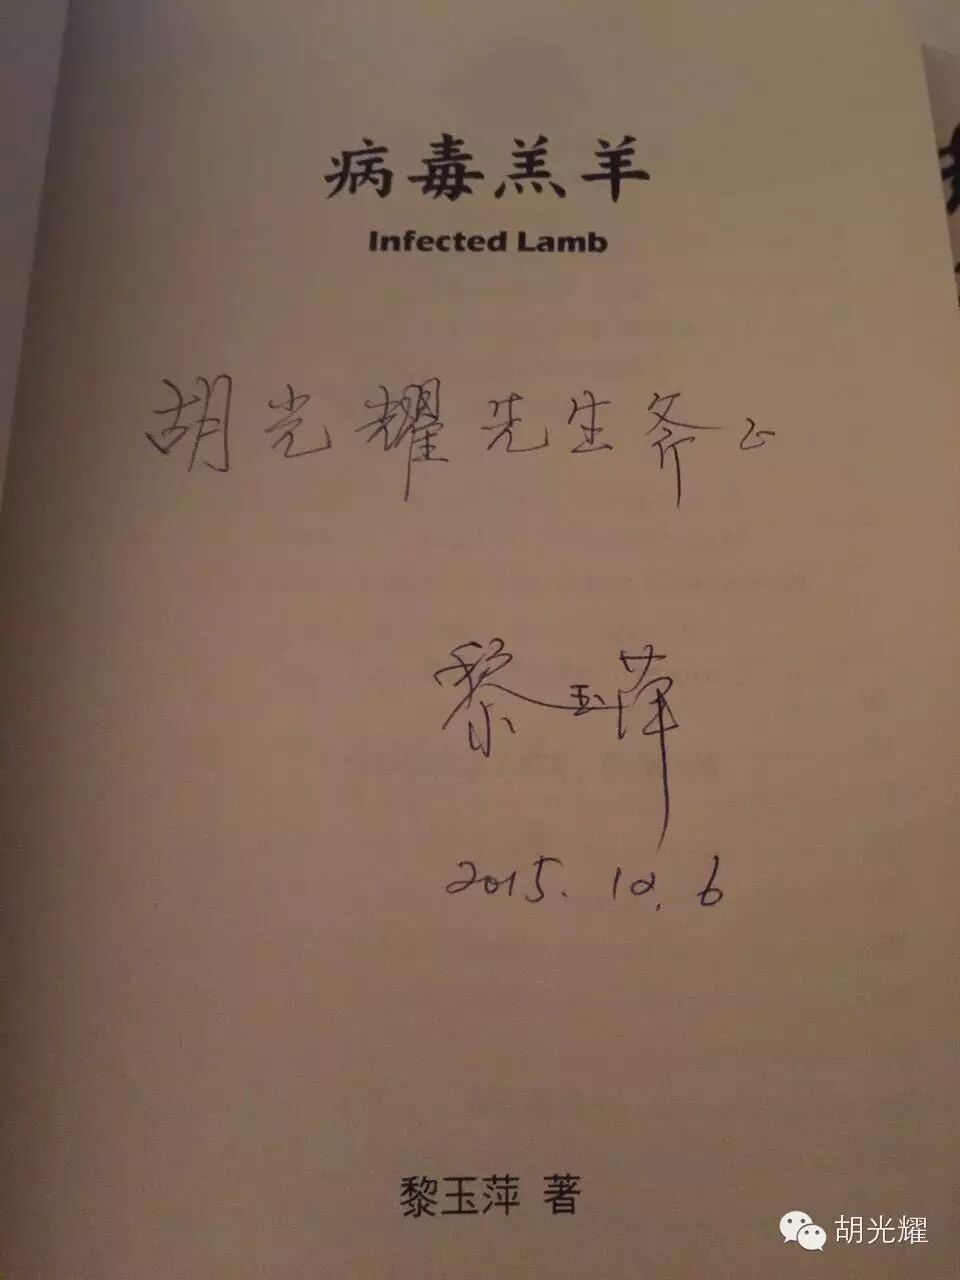 病毒羔羊
Infected Lamb
胡光耀先生斧正
黎玉萍
2015.10.6
黎玉萍 著
胡光耀